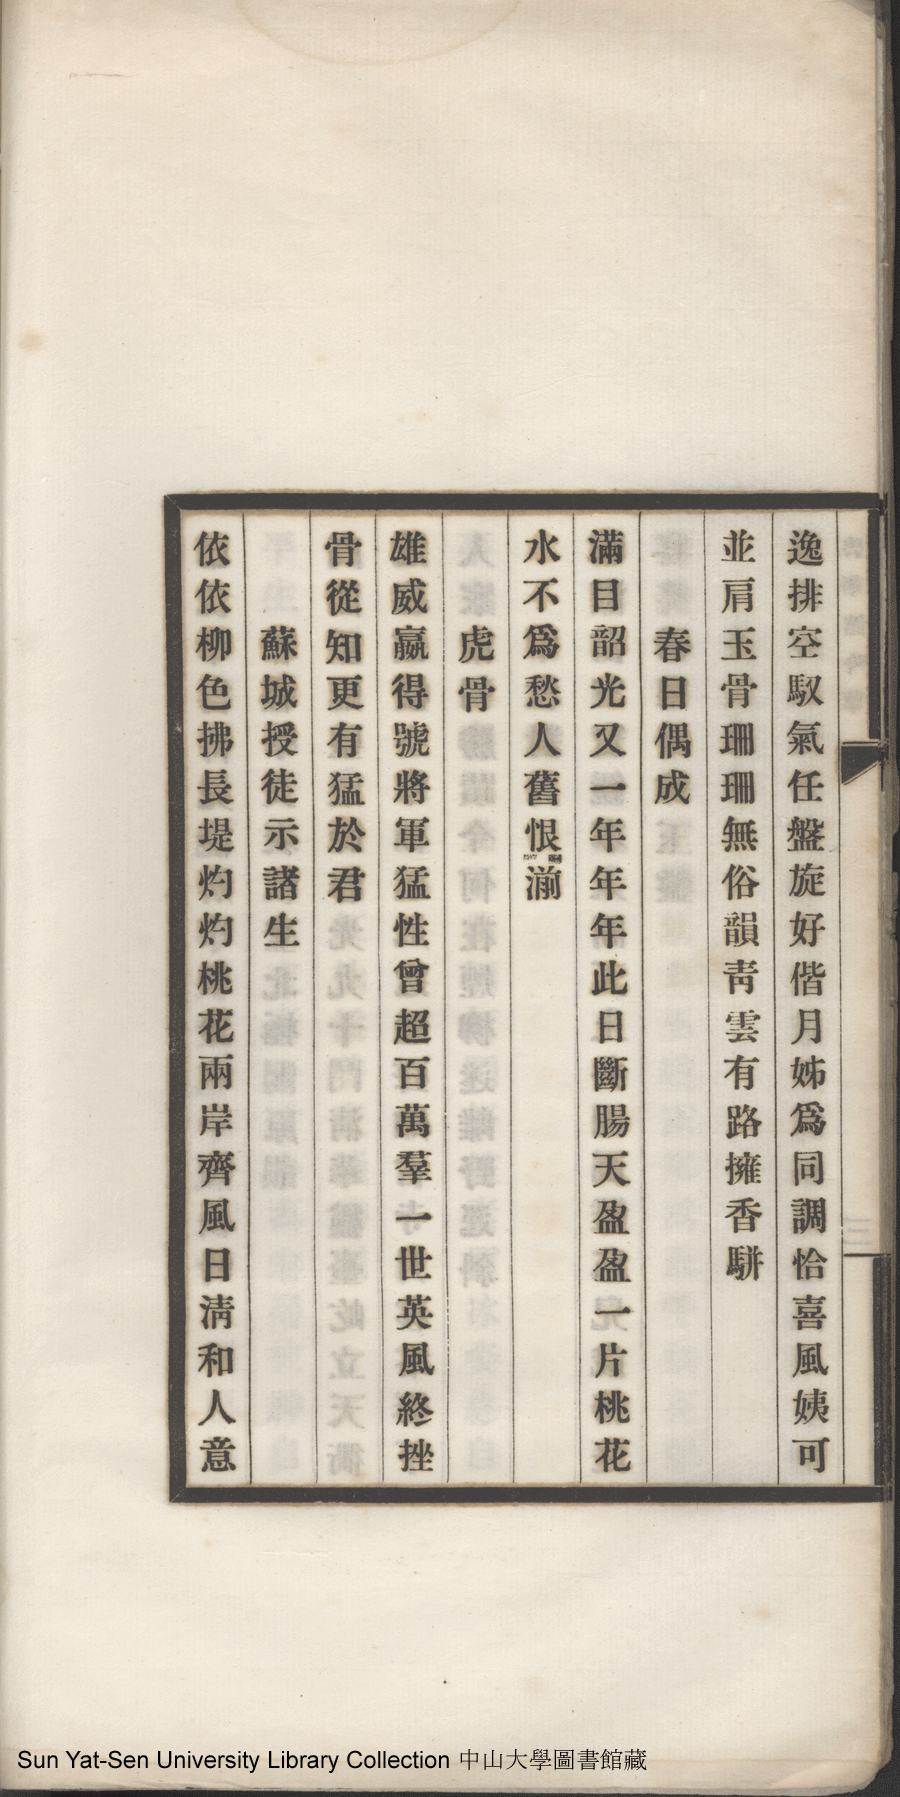 逸排空馭氣任盤旋好偕月姊爲同調恰喜風姨可
並肩玉骨珊珊無俗韻靑雲有路擁香駢
春日偶成
滿目韶光又一年年年此日斷腸天盈盈一片桃花
水不爲愁人舊恨湔
虎骨
雄威嬴得號將軍猛性曾超百萬羣一世英風終挫
骨從知更有猛於君
蘇城授徒示諸生
依依柳色拂長堤灼灼桃花兩岸齊風日淸和人意
三
Sun Yat-Sen University Library Collection 中山大學圖書館藏